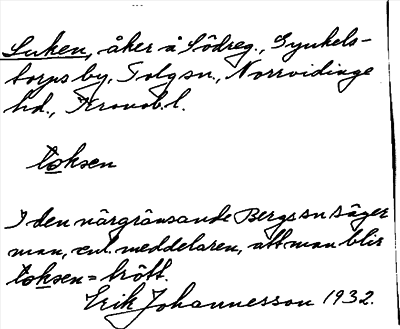 Luken, åker å Södreg., Gynkels-
torps by, Tolg sn., Norrvidinge
hd., Kronob. l.
toksen
I den närgränsande Bergs sn säger
man, enl. meddelaren, att man blir
toksen = trött.
Erik Johannesson 1932.